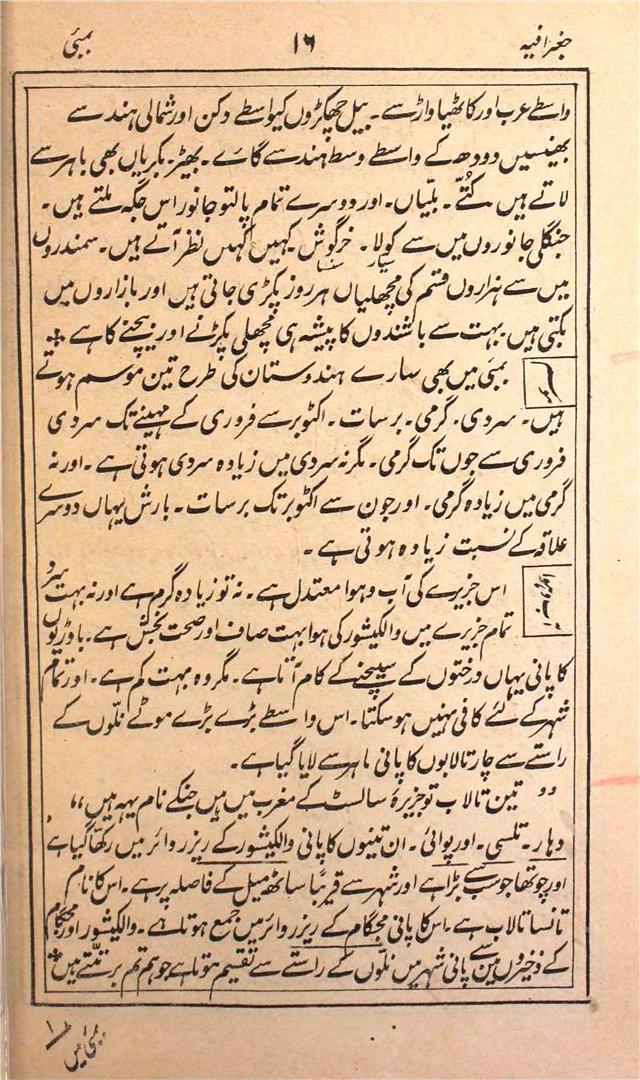 جغرافیہ ۱۶ بمبئی
واسطے عرب اور کاٹھیاواڑ سے۔ بیل چھکڑوں کیواسطے دکن اور شمالی ہند سے
بھینسیں دودھ کے واسطے وسط ہند سے گائے۔ بھیڑ۔ بکریاں بھی باہر سے
لاتے ہیں۔ کُتّے۔ بلّیاں۔ اور دوسرے تمام پالتو جانور اس جگہ ملتے ہیں۔
جنگلی جانوروں میں سے کولا۔ خرگوش کہیں کہیں نظر آتے ہیں۔ سمندروں
میں سے ہزاروں قسم کی مچھلیاں ہر روز پکڑی جاتی ہیں اور بازاروں میں
بکتی ہیں بہت سے باشندوں کا پیشہ ہی مچھلی پکڑنے اور بیچنے کا ہے
موسم
بمبئی میں بھی سارے ہندوستان کی طرح تین موسم ہوتے
ہیں۔ سردی۔ گرمی۔ برسات۔ اکتوبر سے فروری کے مہینے تک سردی
فروری سے جون تک گرمی۔ مگر نہ سردی میں زیادہ سردی ہوتی ہے۔ اور نہ
گرمی میں زیادہ گرمی۔ اور جون سے اکتوبر تک برسات۔ بارش یہاں دوسرے
علاقہ کے نسبت زیادہ ہوتی ہے۔
آب و ہوا
اس جزیرے کی آب و ہوا معتدل ہے۔ نہ تو زیادہ گرم ہے اور نہ بہت سرد
تمام جزیرے میں والکیشور کی ہوا بہت صاف اور صحت بخش ہے۔ باوڑیوں
کا پانی یہاں درختوں کے سینچنے کے کام آتا ہے۔ مگر وہ بہت کم ہے۔ اور تمام
شہر کے لئے کافی نہیں ہو سکتا۔ اس واسطے بڑے بڑے موٹے نلّوں کے
راستے سے چار تالابوں کا پانی باہر سے لایا گیا ہے۔
تین تالاب تو جزیرۂ سالسٹ کے مغرب میں ہیں جنکے نام یہہ ہیں،،
وہار۔ تلسی۔ اور پوائی۔ ان تینوں کا پانی والکیشور کے ریزروائر میں رکھا گیا ہے
اور چوتھا جو سب سے بڑا ہے اور شہر سے قریباً ساٹھ میل کے فاصلہ پر ہے۔ اس کا نام
تانسا تالاب ہے۔ اس کا پانی مجگام کے ریزروائر میں جمع ہوتا ہے۔ والکیشور اور مجگام
کے ذخیروں میں سے پانی شہر میں نلّوں کے راستے سے تقسیم ہوتا ہے جو ہم تم برتتے ہیں
بمبئی میں ۱